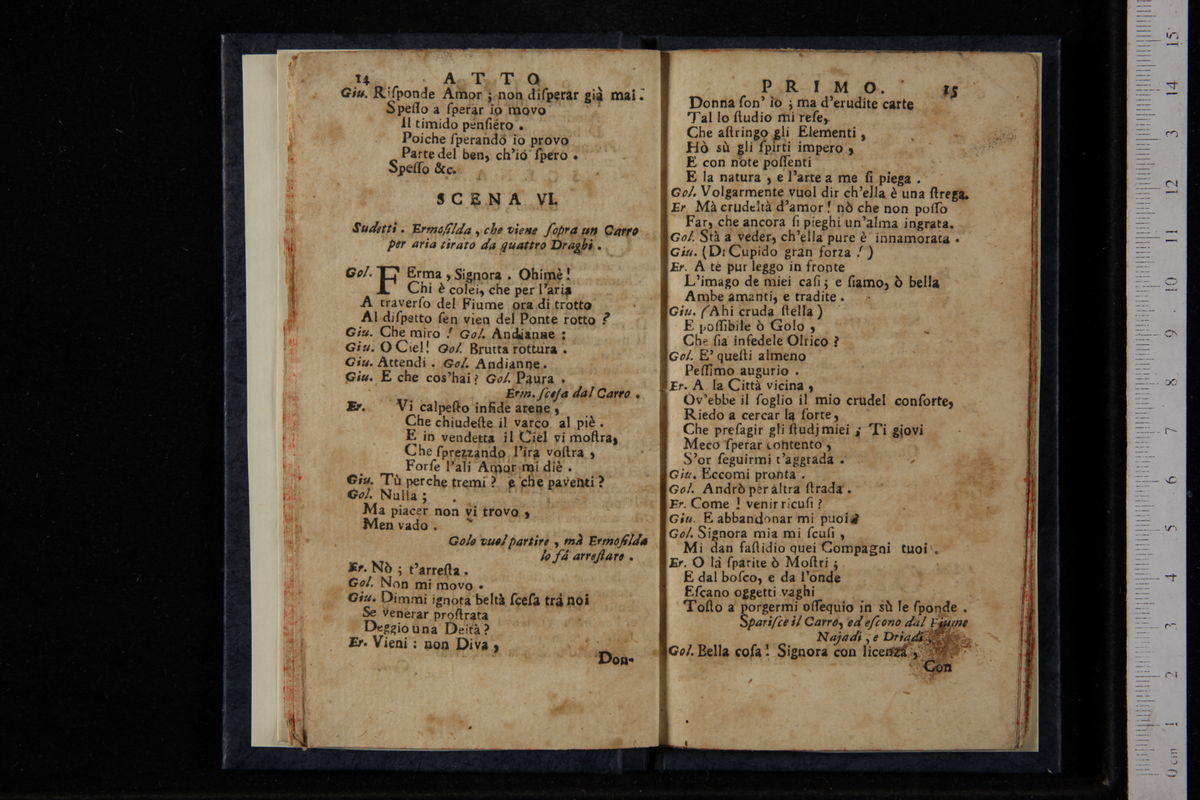 14 ATTO
Giu. Riſponde Amor ; non diſperar già mai.
Speſſo a ſperar io movo
Il timido penſiéro .
Poiche ſperando io provo
Parte del ben, ch'io ſpero .
Speſſo &c.
SCENA VI.
Sudetti . Ermoſilda , che viene ſopra un Carro
per aria tirato da quattro Draghi .
Gol. FErma , Signora . Ohimè !
Chi è colei, che per l'aria
A traverſo del Fiume ora di trotto
Al diſpetto ſen vien del Ponte rotto ?
Giu. Che miro ! Gol. Andianne :
Giu. O Ciel! Gol. Brutta rottura .
Giu. Attendi . Gol. Andianne.
Giu. E che cos'hai ? Gol. Paura .
Erm. ſceſa dal Carro .
Er. Vi calpeſto infide arene ,
Che chiudeſte il varco al piè .
E in vendetta il Ciel vi moſtra,
Che ſprezzando l'ira voſtra ,
Forſe l'ali Amor mi diè .
Giu. Tù perche tremi ? e che paventi ?
Gol. Nulla ;
Ma piacer non vi trovo ,
Men vado .
Golo vuol partire , mà Ermoſilda
lo fá arreſtare .
Er. Nò ; t'arreſta .
Gol. Non mi movo .
Giu. Dimmi ignota beltà ſceſa trà noi
Se venerar proſtrata
Deggio una Deità ?
Er. Vieni : non Diva ,
Don-
PRIMO. 15
Donna ſon' io ; ma d'erudite carte
Tal lo ſtudio mi reſe,
Che aſtringo gli Elementi ,
Hò sù gli ſpirti impero ,
E con note poſſenti
E la natura , e l'arte a me ſi piega .
Gol. Volgarmente vuol dir ch'ella è una ſtrega.
Er Mà crudeltà d'amor ! nò che non poſſo
Far, che ancora ſi pieghi un'alma ingrata.
Gol. Stà a veder, ch'ella pure è innamorata .
Giu. (Di Cupido gran forza ! )
Er. A tè pur leggo in fronte
L'imago de miei caſi ; e ſiamo, ò bella
Ambe amanti, e tradite .
Giu. (Ahi cruda ſtella )
E poſſibile ò Golo ,
Che ſia infedele Olrico ?
Gol. E' queſti almeno
Peſſimo augurio .
Er. A la Città vicina ,
Ov'ebbe il ſoglio il mio crudel conſorte,
Riedo a cercar la ſorte,
Che preſagir gli ſtudj miei ; Ti giovi
Meco ſperar contento ,
S'or ſeguirmi t'aggrada .
Giu. Eccomi pronta .
Gol. Andrò per altra ſtrada .
Er. Come ! venir ricuſi ?
Giu. E abbandonar mi puoi ?
Gol. Signora mia mi ſcuſi ,
Mi dan faſtidio quei Compagni tuoi .
Er. O là ſparite ò Moſtri ;
E dal boſco, e da l'onde
Eſcano oggetti vaghi
Toſto a porgermi oſſequio in sù le ſponde .
Spariſce il Carro, ed eſcono dal Fiume
Najadi , e Driadi .
Gol. Bella coſa ! Signora con licenza ,
Con
0 cm 1 2 3 4 5 6 7 8 9 10 11 12 13 14 15